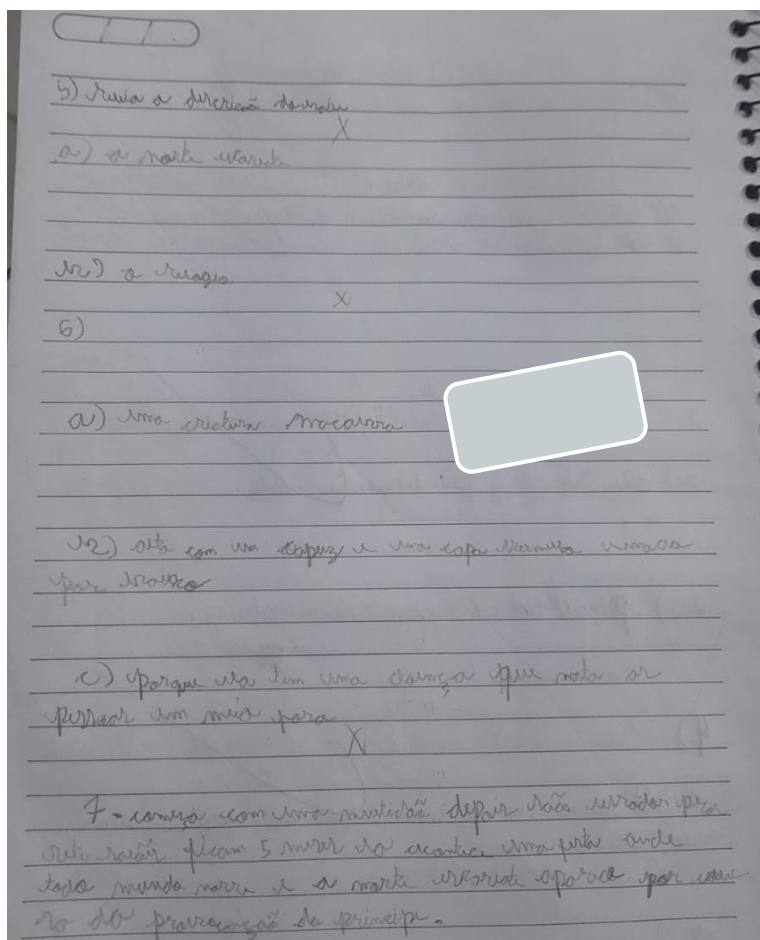 5) a descrição do
X
a) a morte escarlate
b) o relogio
X
6)
a) uma criatura macabra
b) alta com um capuz e uma capa vermelha
por
c) porque ela tem uma doença que mata as
pessoas em meia
X
7 - começa com uma multidão depois são levados pra
sete salões ficam 5 meses la acontece uma festa onde
todo mundo morre e a morte escarlate aparece por
da provocação do principe.